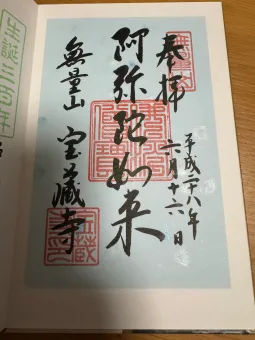 奉拝
平成二十八年
六月十六日
阿弥陀如来
無量山 宝蔵寺
生誕三百年